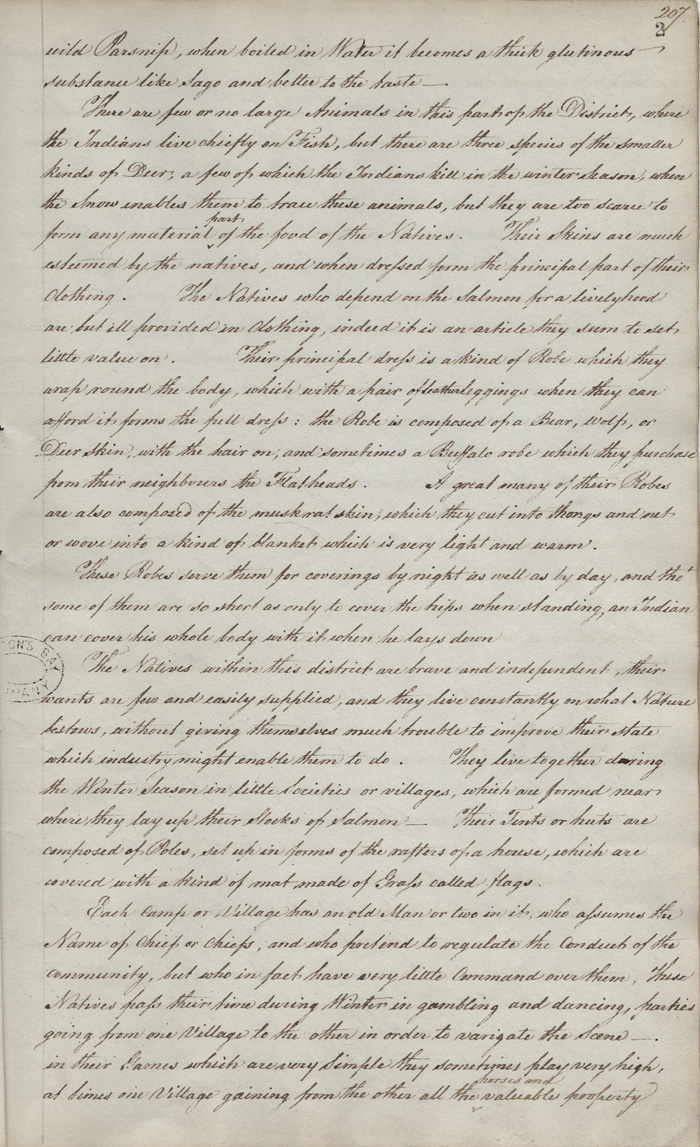 207
2
wild Parsnip, when boiled in Water it becomes a thick glutinous
substance like Sago and better to the taste —.
There are few or no large Animals in this part of the District, where
the Indians live chiefly on Fish, but there are three species of the smaller
kinds of Deer, a few of which the Indians kill in the winter season, when
the Snow enables them to trace these animals, but they are too scarce to
part
form any material of the food of the Natives. Their Skins are much
esteemed by the natives, and when dressed form the principal part of their
Clothing. The Natives who depend on the Salmon for a livelyhood
are but ill provided in Clothing, indeed it is an article they seem to set
little value on. Their principal dress is a kind of Robe which they
wrap round the body, which with a pair of leather leggings when they can
afford it forms the full dress: the Robe is composed of a Bear, Wolf, or
Deer skin, with the hair on, and sometimes a Buffalo robe which they purchase
from their neighbours the Flatheads. A great many of their Robes
are also composed of the muskrat skin, which they cut into thongs and net
or wove into a kind of blanket which is very light and warm.
These Robes serve them for coverings by night as well as by day, and tho'
some of them are so short as only to cover the hips when standing, an Indian
can cover his whole body with it when he lays down
The Natives within this district are brave and independent, their
wants are few and easily supplied, and they live constantly on what Nature
bestows, without giving themselves much trouble to improve their state
which industry might enable them to do. They live together during
the Winter Season in little Societies or villages, which are formed near
where they lay up their Stocks of Salmon — Their Tents or huts are
composed of Poles, set up in forms of the rafters of a house, which are
covered with a kind of mat made of Grass called flags.
Each Camp or Village has an old Man or two in it, who assumes the
Name of Chief or Chiefs, and who pretend to regulate the Conduct of the
community, but who in fact have very little Command over them, These
Natives pass their time during Winter in gambling and dancing, parties
going from one Village to the other in order to varigate the Scene —.
in their Games which are very simple they sometimes play very high,
horses and
at times one Village gaining from the other all the valuable property